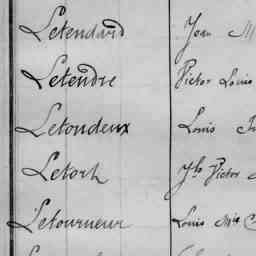 Letendard Jean M
Letendre Victor Louis
Letondeux Louis
Letorh Victor
Letourneur Louis Mie C